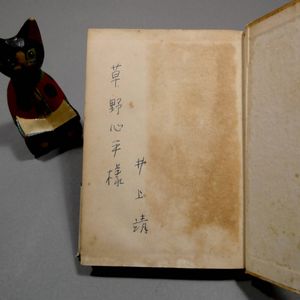 草野心平様
井上靖